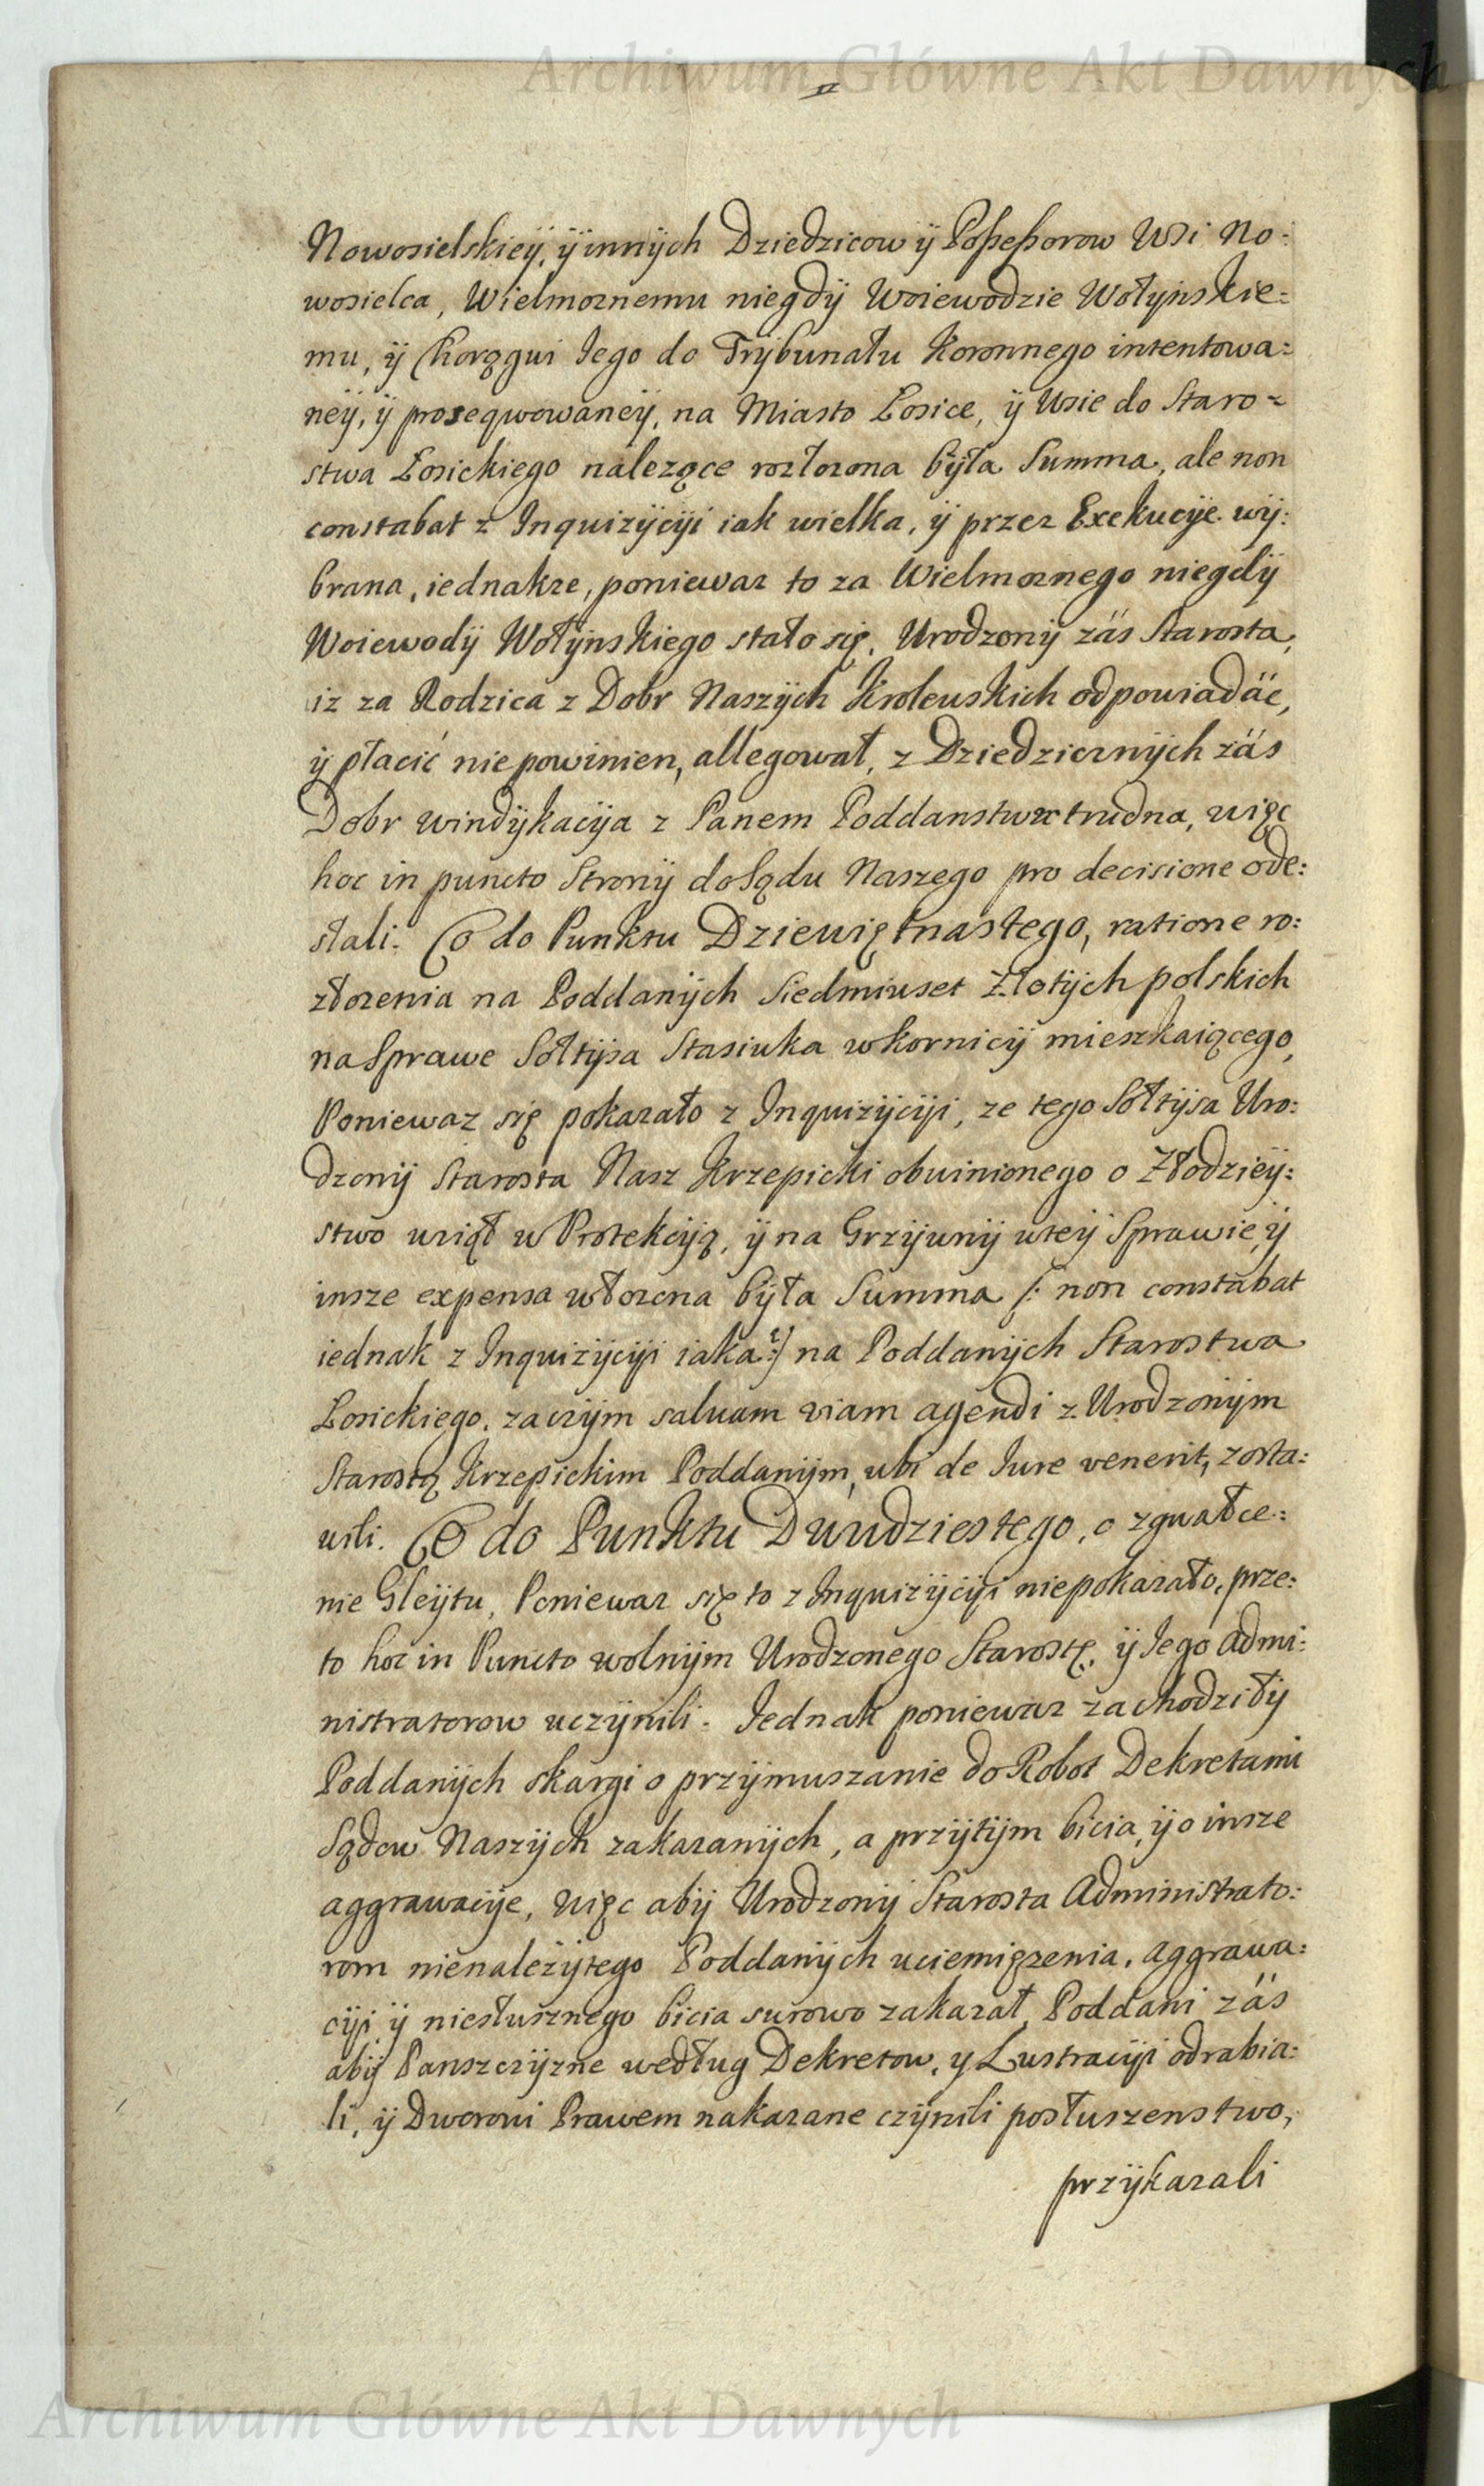 Archiwum Główne Akt Dawnych
Nowosielskiey, y innych Dziedzicow y Possessorow Wsi No:
wosielca, Wielmoznemu niegdy Woiewodzie Wołynskie:
mu, y Chorągwi Iego do Trybunału Koronnego intentowa:
ney, y prosequowaney, na Miasto Łosice, y Wsie do Staro:
stwa Łosickiego nalezące rozłozona była Summa, ale non
constabat z Inquizycyi iak wielka, y przez Exekucye wy:
brana, iednakze, poniewaz to za Wielmoznego niegdy
Woiewody Wołynskiego stało się, Urodzony zás Starosta,
iz za Rodzica z Dobr Naszych Krolewskich odpowiadác,
y płacić nie powinien, allegował, z Dziedzicznych zás
Dobr windykacya z Panem Poddanstwu trudna, więc
hoc in puncto Strony do Sądu Naszego pro decisione ode:
słali. Co do Punktu Dziewiętnastego, ratione ro:
złozenia na Poddanych Siedmiuset Złotych polskich
na Sprawe Sołtysa Stasiuka w Kornicy mieszkaiącego,
Poniewaz się pokazało z Inquizycyi, ze tego Sołtysa Uro:
dzony Starosta Nasz Krzepicki obwinionego o Złodziey:
stwo wziął w Protekcyą, y na Grzywny w tey Sprawie, y
insze expensa włozona była Summa /: non constabat
iednak z Inquizycyi iaka? :/ na Poddanych Starostwa
Łosickiego, zaczym saluam viam agendi z Urodzonym
Starostą Krzepickim Poddanym, ubi de Iure venerit, zosta:
wili. Co do Punktu Dwudziestego, o zgwałce:
nie Gleytu, Poniewaz się to z Inquizycyi niepokazało, prze:
to hoc in Puncto wolnym Urodzonego Starostę, y Iego Admi:
nistratorow uczynili. Iednak poniewaz zachodziły
Poddanych skargi o przymuszanie do Robot Dekretami
Sądow Naszych zakazanych, a przytym bicia, y o insze
aggrawacye, więc aby Urodzony Starosta Administrato:
rom nienależytego Poddanych uciemięzenia, aggrawa:
cyi y niesłusznego bicia surowo zakazał, Poddani zás
aby Panszczyzne według Dekretow, y Lustracyi odrabia:
li, y Dworowi Prawem nakazane czynili posłuszenstwo,
przykazali
Archiwum Główne Akt Dawnych